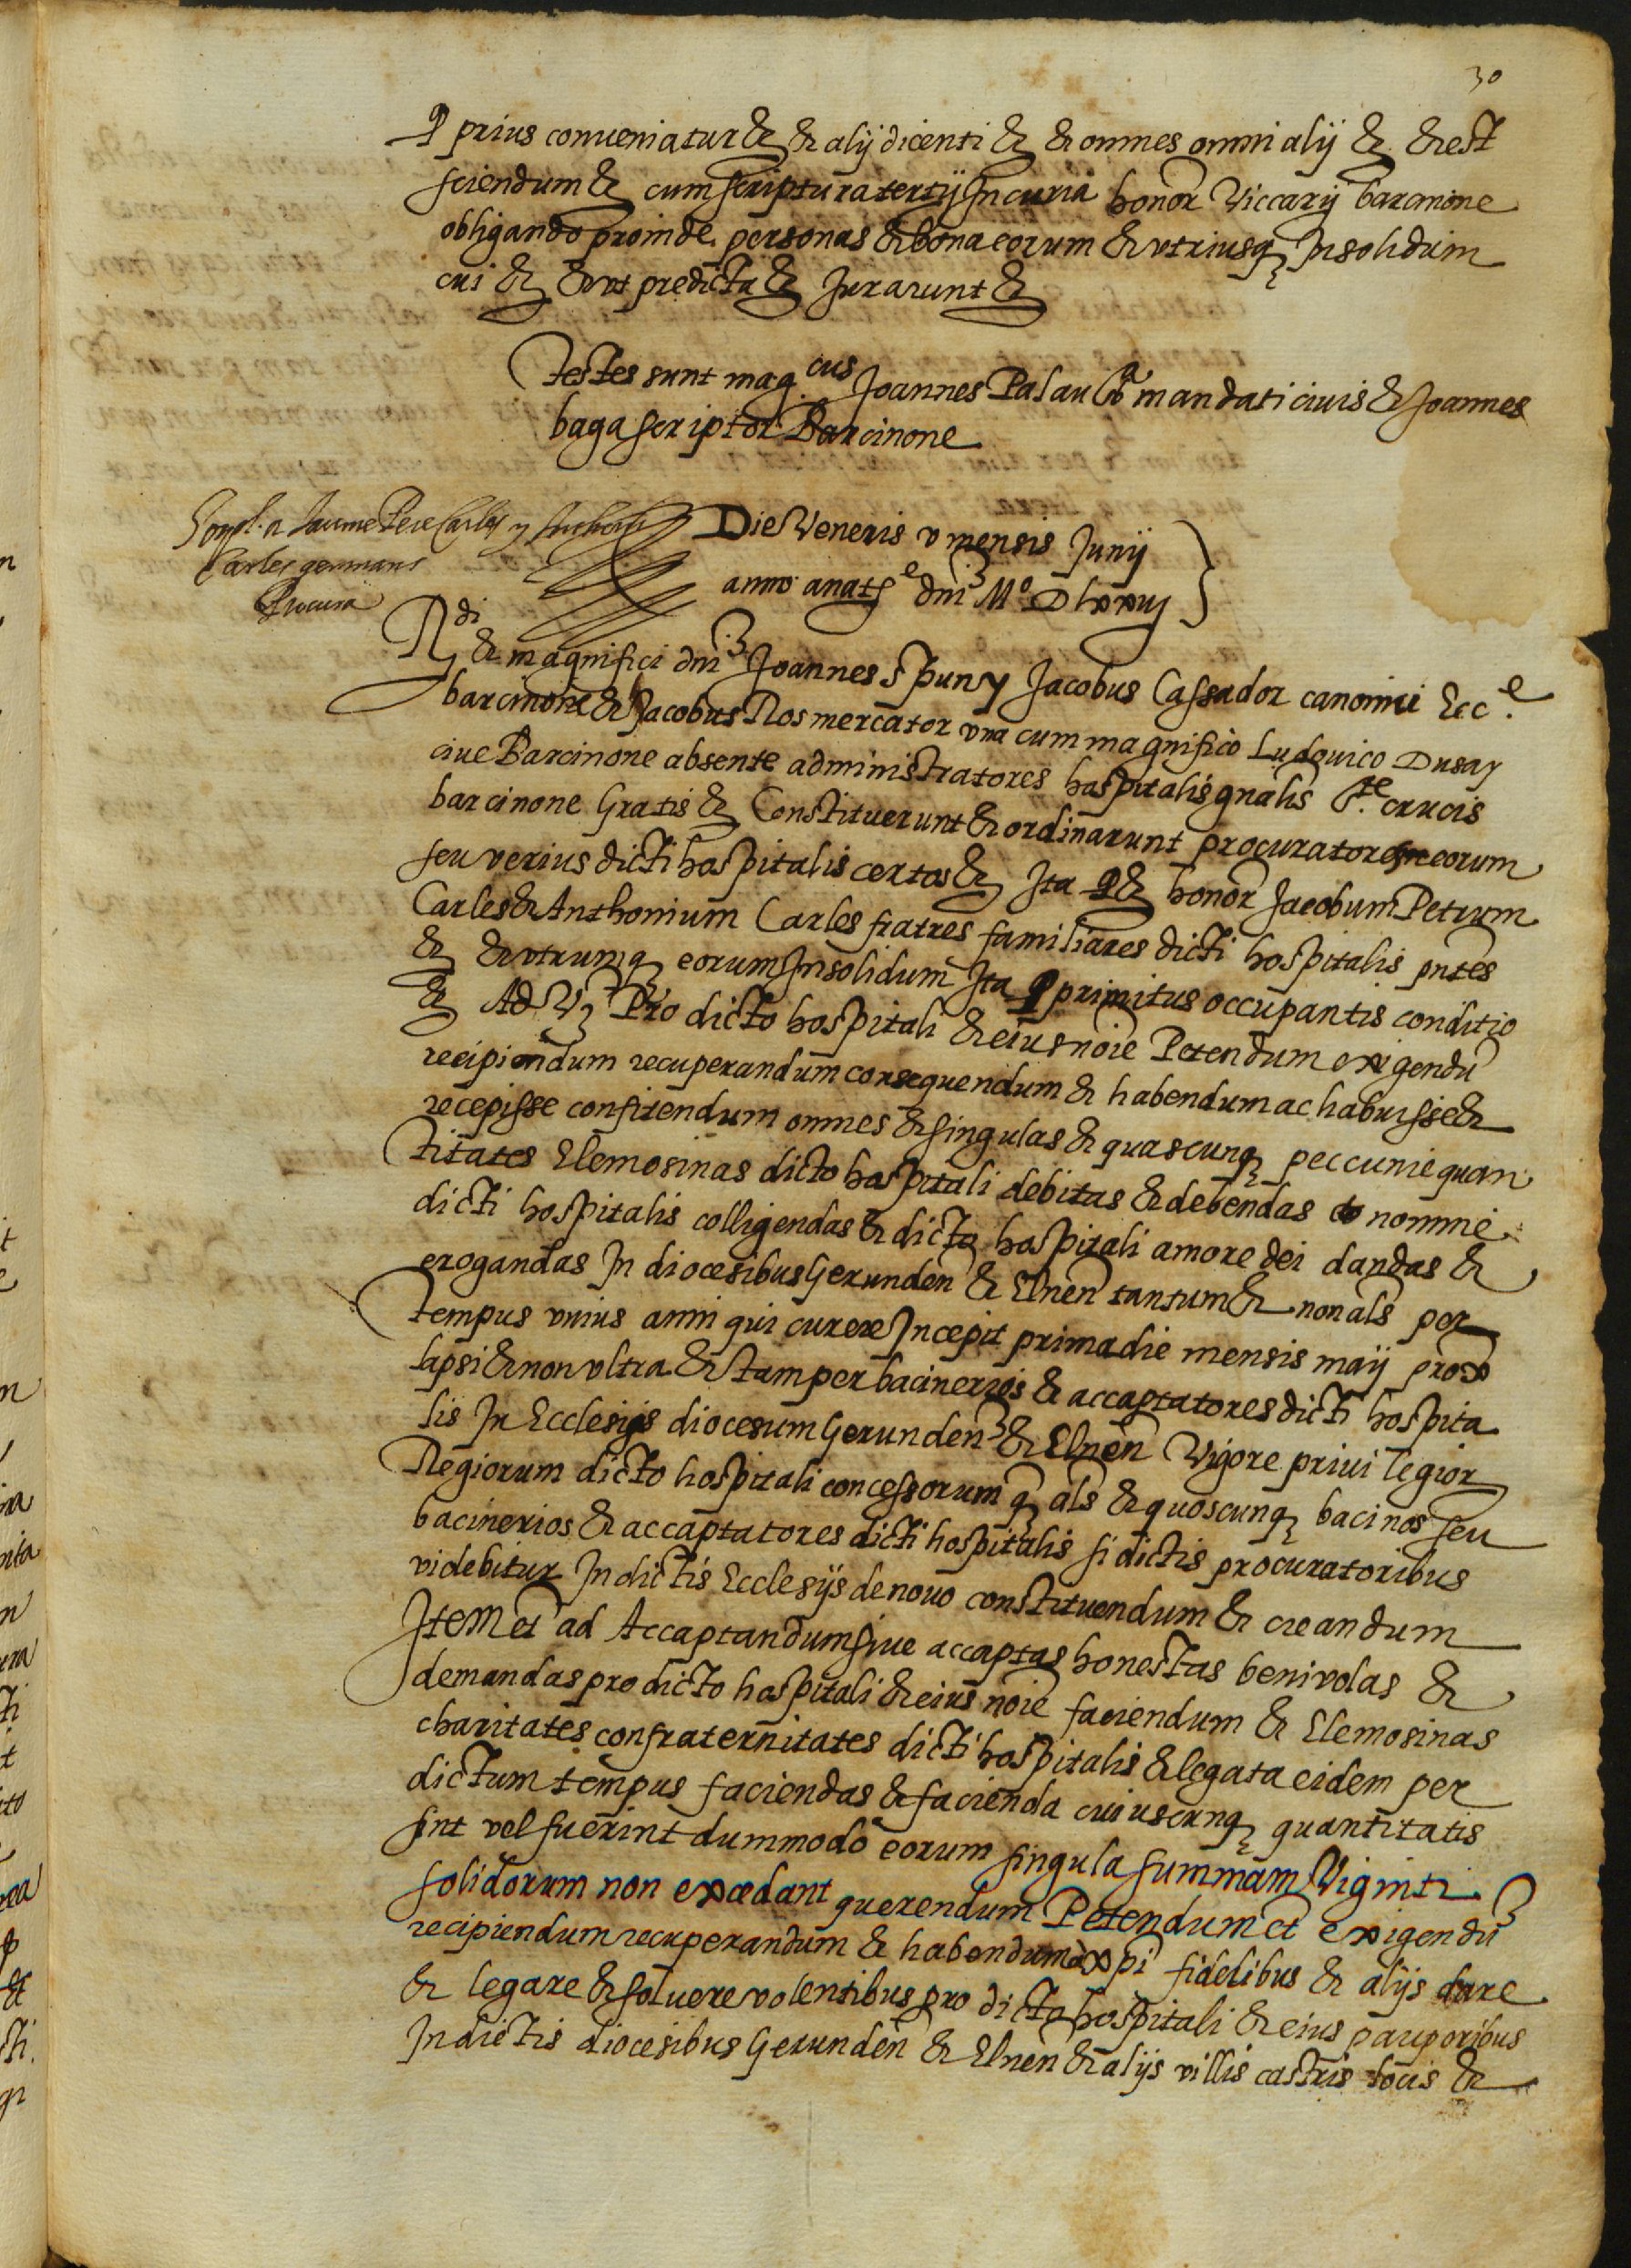 30
Q prius conveniatur &c & alij dicenti &c & omnes omni alij &c & est
sciendum &c cum scriptura tertij In curia honor Viccarij barcinone
obligando proinde personas & bona eorum & utriusq Insolidum
cui &c & ut predicta &c Jurarunt &c
testes sunt mag.cus Joannes Palau mandati civis & Joannes
baga scriptor Barcinone
Die Veneris v mensis Junij
anno a nate dni Mo D lxxxvij
a Jaume Pere Carles y
Carles germans
Procura
Rdi & magnifici dni Joannes Spuny Jacobus Cassador canonici Ecc.e
barcinone & Jacobus Ros mercator una cum magnifico Ludovico Dusay
cive Barcinone absente administratores hospitalis gnalis Ste crucis
barcinone Gratis &c Constituerunt & ordinarunt procuratores eorum
seu verius dicti hospitalis certos &c Ita Q &c honor Jacobum Petrum
Carles & Anthonium Carles fratres familiares dicti hospitalis pntes
&c & utrumq eorum Insolidum Ita Q primitus occupantis conditio
&c Ad Pro dicto hospitali & eius noie Petendum exigendu
recipiendum recuperandum consequendum & habendum ac habuisse &
recepisse confitendum omnes & singulas & quascunq peccunie quan
titates Elemosinas dicto hospitali debitas & debendas nomine
dicti hospitalis colligendas & dicto hospitali amore dei dandas &
erogandas In diocesibus Gerunden & Elnen tantum & non als per
tempus unius anni qui currere Incepit prima die mensis maij prox
lapsi & non ultra & tam per bacinerios & accaptatores dicti hospita
lis In Ecclesijs diocesum Gerunden & Elnen Vigore privilegior
Regiorum dicto hospitali concessorum q als & quoscunq bacinos seu
bacinerios & accaptatores dicti hospitalis si dictis procuratoribus
videbitur In dictis Ecclesijs de novo constituendum & creandum
Item et ad Accaptandum sive accaptas honestas benivolas &
demandas pro dicto hospitali & eius noie faciendum & Elemosinas
charitates confraternitates dicti hospitalis & legata eidem per
dictum tempus faciendas & facienda cuiuscunq quantitatis
sint vel fuerint dummodo eorum singula summam Viginti
solidorum non excedant querendum Petendum et exigendu
recipiendum recuperandum & habendum a xpi fidelibus & alijs dare
& legare & soluere volentibus pro dicto hospitali & eius pauperibus
In dictis diocesibus Gerunden & Elnen & alijs villis castris locis &